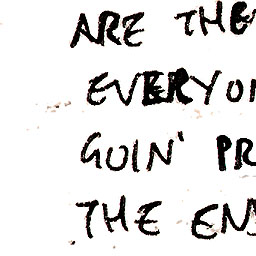 ARE THE
EVERYO
GOIN' PR
THE ENS